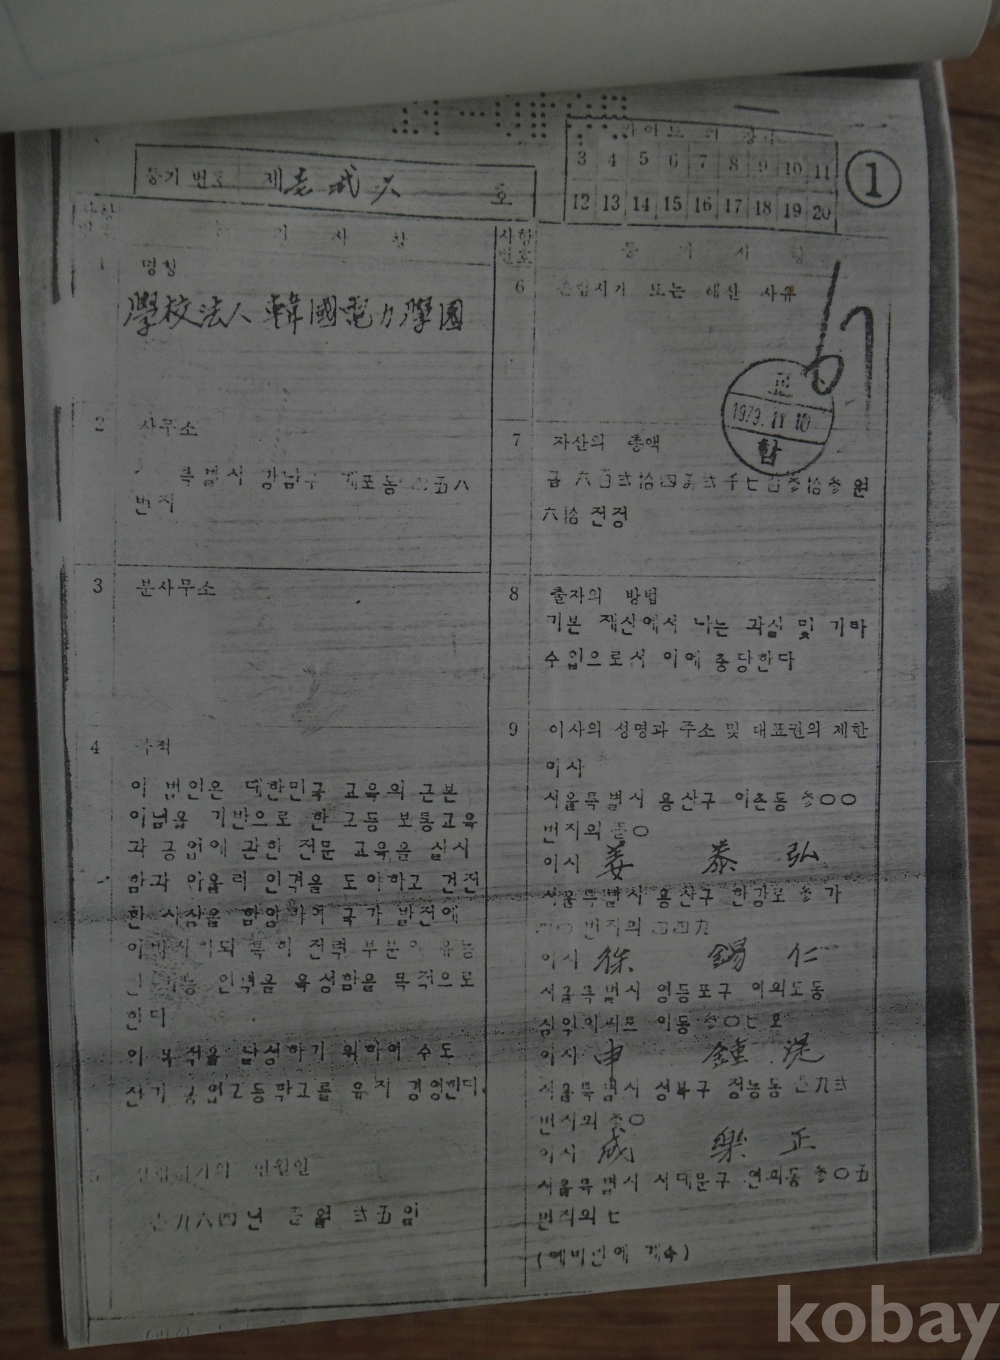 3 4 5 6 7 8 9 10 11
12 13 14 15 16 17 18 19 20
①
등기 번호 제 호
기 사 항
명칭
學校法人 韓國電力學園
2 사무소
특별시 강남구 개포동 四五八
번지
3 분사무소
4 목적
이 법인은 대한민국 교육의 근본
이념을 기반으로 한 고등 보통교육
과 공업에 관한 전문 교육을 실시
함과 아울러 인격을 도야하고 건전
한 사상을 함양하여 국가 발전에
이바지 되 특히 전력 부분의 유능
인력을 육성함을 목적으로
한다
이 목적을 달성하기 위하여 수도
전기 공업고등학교를 유지 경영한다.
5
九六四년 월 弐五일
사항
번호
등 기 사 항
6 존립시기 또는 해산 사유
교
1979. 11. 10
합
7 자산의 총액
금 六百弐拾四萬弐千七百参拾参원
六拾 전정
8 출자의 방법
기본 재산에서 나는 과실 및 기타
수입으로서 이에 충당한다
9 이사의 성명과 주소 및 대표권의 제한
이사
서울특별시 용산구 이촌동 参〇〇
번지의 壱〇
이사 姜 泰 弘
서울특별시 용산구 한강로 参가
四〇 번지의 四四九
이사 徐 錫 仁
서울특별시 영등포구 여의도동
삼익아파트 이동 参〇七호
이사 申 鍾
서울특별시 성북구 정능동 壱九弐
번지의 参〇
이사 成 樂 正
서울특별시 서대문구 연희동 参〇五
번지의 七
(예비란에 계속)
kobay